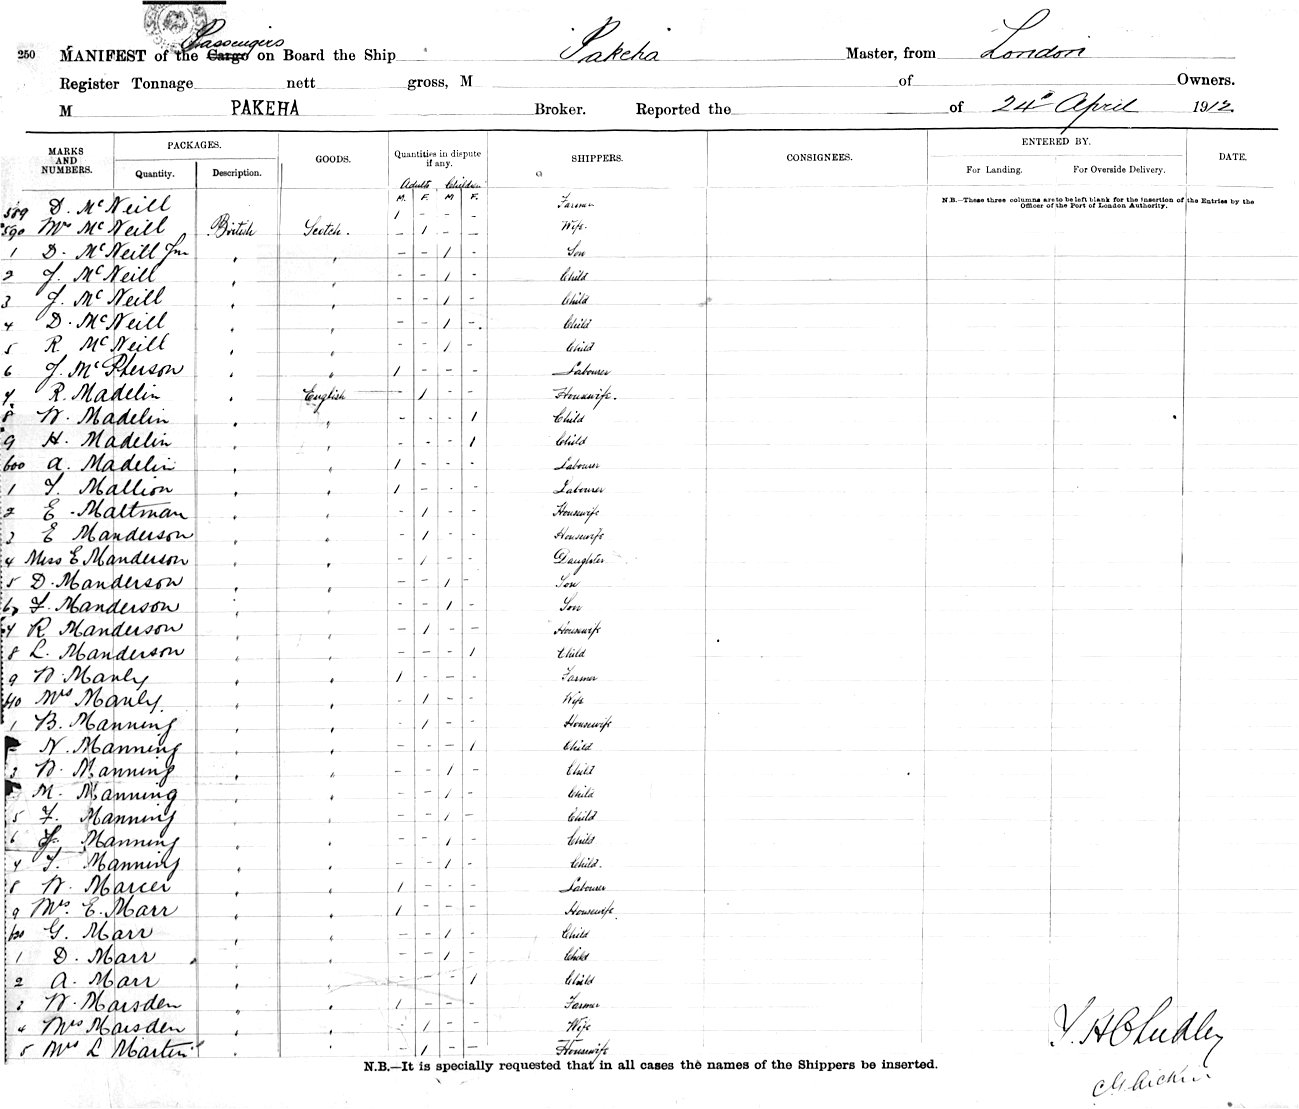 250 MANIFEST of the Cargo Passengers on Board the Ship Pakeha Master, from London
Register Tonnage nett gross, M of Owners.
M PAKEHA Broker. Reported the of 24th April 1912.
MARKS AND NUMBERS. PACKAGES. Quantity. Description. GOODS. Quantities in dispute if any. SHIPPERS. CONSIGNEES. ENTERED BY. For Landing. For Overside Delivery. DATE.
Adults Children
M. F. M F.
N.B.—These three columns are to be left blank for the insertion of the Entries by the
Officer of the Port of London Authority.
589 D. McNeill 1 - - - Farmer
590 Mrs McNeill British Scotch. - 1 - - Wife.
1 D. McNeill Jnr " " - - 1 - Son
2 J. McNeill " " - - 1 - Child
3 J. McNeill " " - - 1 - Child
4 D. McNeill " " - - 1 - Child
5 R. McNeill " " - - 1 - Child
6 J. McPherson " " 1 - - - Labourer
7 R. Madelin " English - 1 - - Housewife.
8 W. Madelin " " - - - 1 Child
9 H. Madelin " " - - - 1 Child
600 A. Madelin " " 1 - - - Labourer
1 T. Mallion " " 1 - - - Labourer
2 E. Maltman " " - 1 - - Housewife
3 E Manderson " " - 1 - - Housewife
4 Miss E Manderson " " - 1 - - Daughter
5 D. Manderson " " - - 1 - Son
6 F. Manderson " " - - 1 - Son
7 R Manderson " " - 1 - - Housewife
8 L. Manderson " " - - - 1 Child
9 W Manly " " 1 - - - Farmer
Mrs Manly " " - 1 - - Wife
1 B. Manning " " - 1 - - Housewife
N. Manning " " - - - 1 Child
3 W. Manning " " - - 1 - Child
M. Manning " " - - 1 - Child
5 F. Manning " " - - 1 - Child
6 Manning " " - - 1 - Child
7 T. Manning " " - - 1 - Child.
8 W. Marcer " " 1 - - - Labourer
9 Mrs. E. Marr " " 1 - - - Housewife
G. Marr " " - - 1 - Child
1 D. Marr " " - - 1 - Child
2 A. Marr " " - - - 1 Child
3 W. Marsden " " 1 - - - Farmer
4 Mrs Marsden " " - 1 - - Wife
5 Mrs L Martin " " - 1 - - Housewife
N.B.—It is specially requested that in all cases the names of the Shippers be inserted.